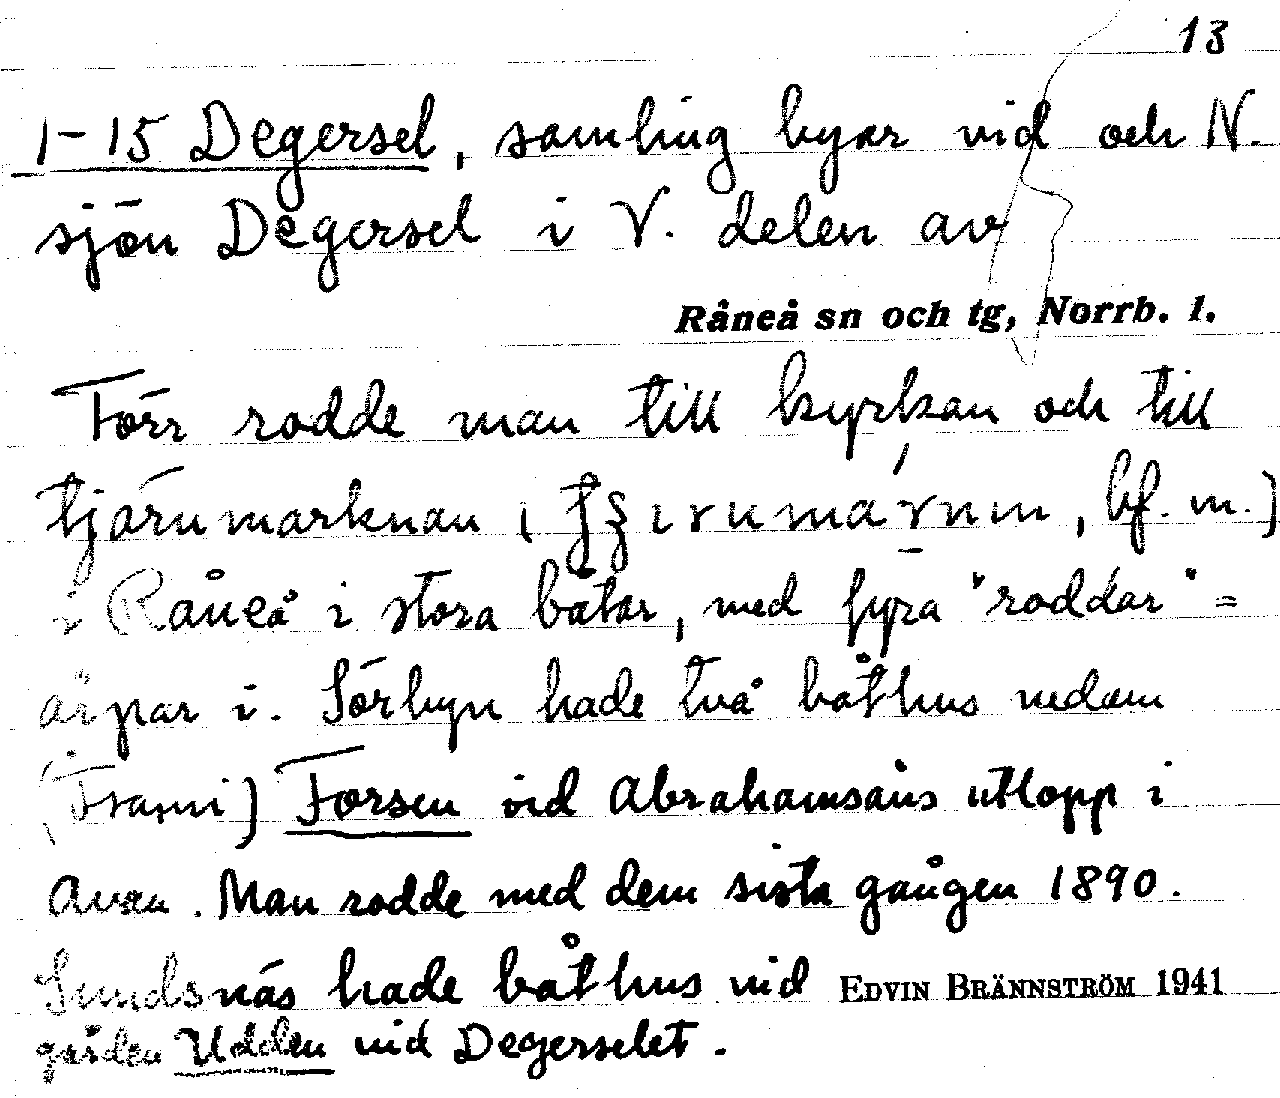 13
1-15 Degersel, samling byar vid och N.
sjön Degersel i V. delen av
Råneå sn och tg, Norrb. l.
Förr rodde man till kyrkan och till
tjärnmarknan (, bf. m.)
i Råneå i stora båtar, med fyra "roddar" =
årpar i. Sörbyn hade två båthus nedom
(Frami) Forsen vid Abrahamsåns utlopp i
Avan. Man rodde med dem sista gången 1890.
Sundsnäs hade båthus vid EDVIN BRÄNNSTRÖM 1941
gården Udden vid Degerselet.